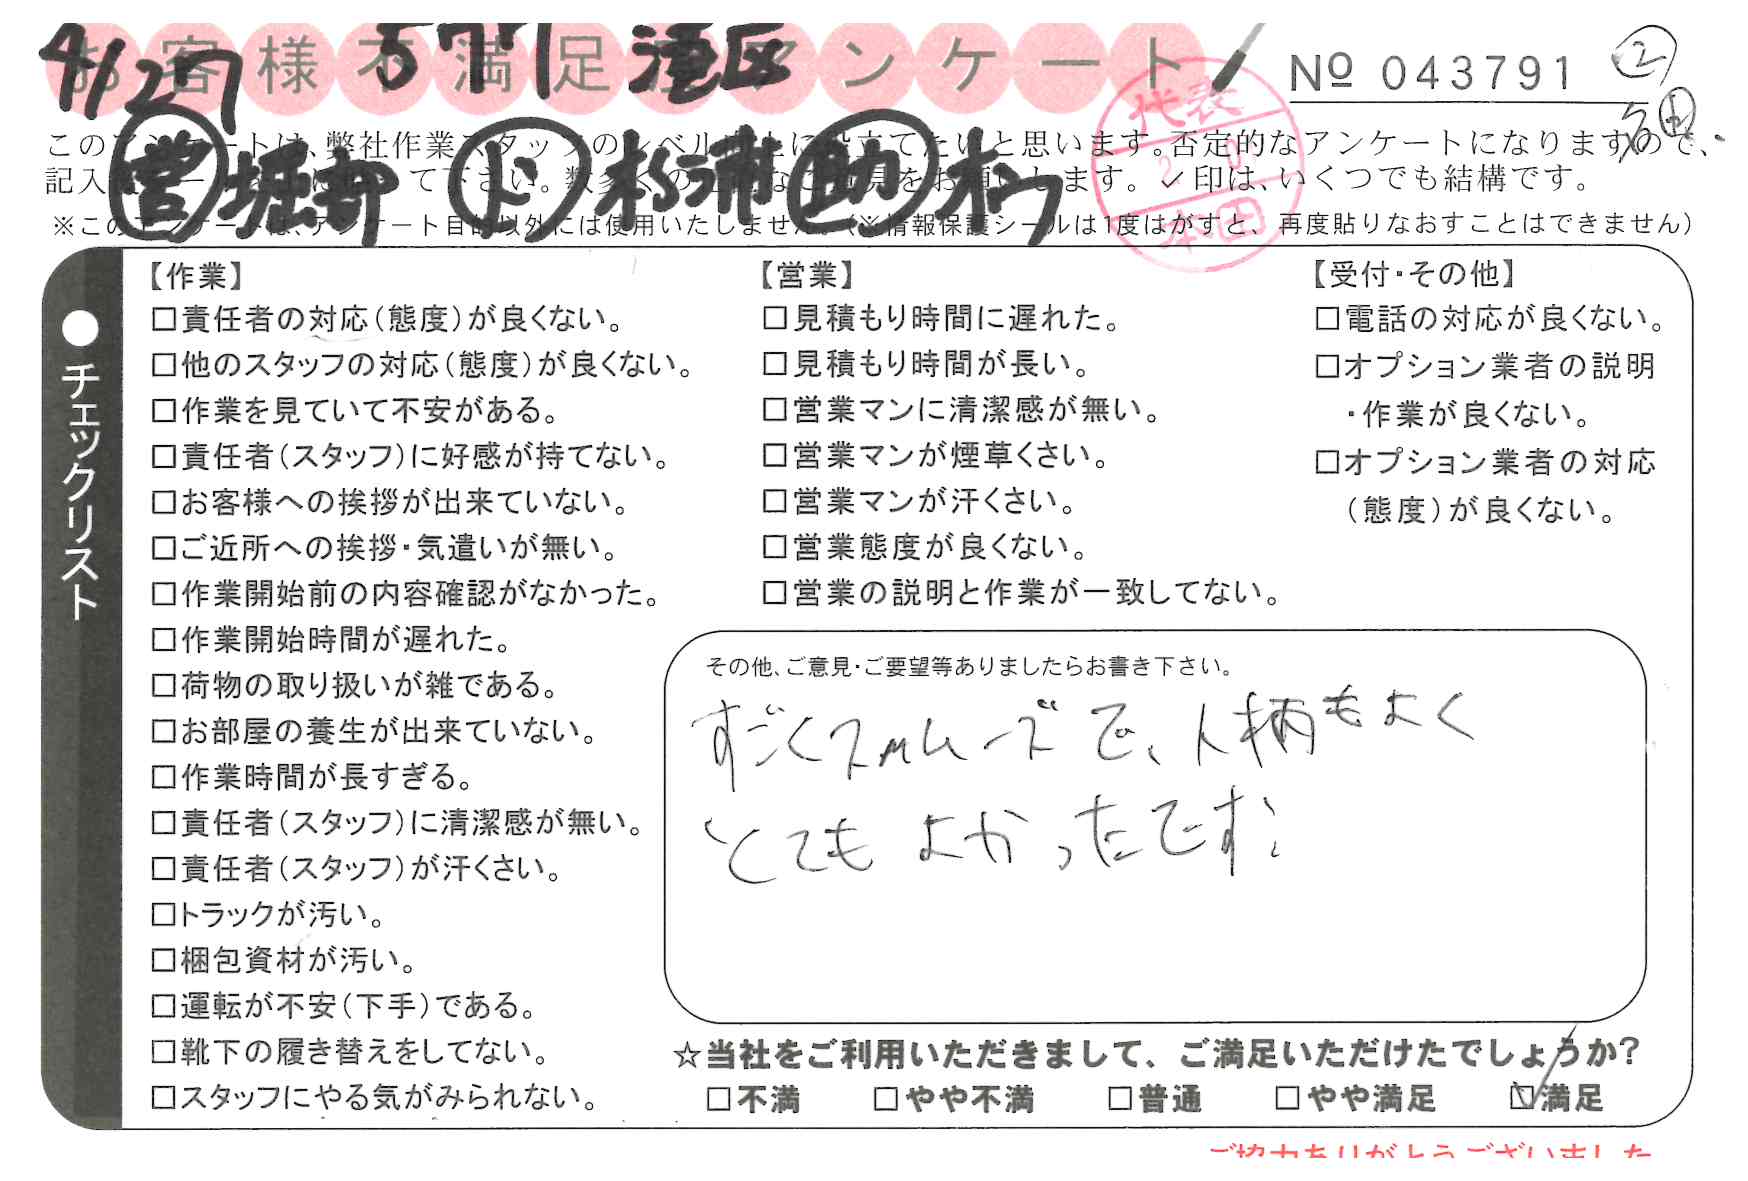 お客様不満足度アンケート
№ 043791
②
4/27 577 港区
代表
本田
このアンケートは、弊社作業スタッフのレベル向上に役立てたいと思います。否定的なアンケートになりますので、
記入して下さい。数多くの お願いします。✓印は、いくつでも結構です。
営 堀部 ド 杉浦 助 オウ
※このアンケートは、アンケート目的以外には使用いたしません。(※情報保護シールは1度はがすと、再度貼りなおすことはできません)
●チェックリスト
【作業】
□責任者の対応(態度)が良くない。
□他のスタッフの対応(態度)が良くない。
□作業を見ていて不安がある。
□責任者(スタッフ)に好感が持てない。
□お客様への挨拶が出来ていない。
□ご近所への挨拶・気遣いが無い。
□作業開始前の内容確認がなかった。
□作業開始時間が遅れた。
□荷物の取り扱いが雑である。
□お部屋の養生が出来ていない。
□作業時間が長すぎる。
□責任者(スタッフ)に清潔感が無い。
□責任者(スタッフ)が汗くさい。
□トラックが汚い。
□梱包資材が汚い。
□運転が不安(下手)である。
□靴下の履き替えをしてない。
□スタッフにやる気がみられない。
【営業】
□見積もり時間に遅れた。
□見積もり時間が長い。
□営業マンに清潔感が無い。
□営業マンが煙草くさい。
□営業マンが汗くさい。
□営業態度が良くない。
□営業の説明と作業が一致してない。
【受付・その他】
□電話の対応が良くない。
□オプション業者の説明
・作業が良くない。
□オプション業者の対応
(態度)が良くない。
その他、ご意見・ご要望等ありましたらお書き下さい。
すごくスムーズで、人柄もよく
とてもよかったです!
☆当社をご利用いただきまして、ご満足いただけたでしょうか?
□不満 □やや不満 □普通 □やや満足 ☑満足
ご協力ありがとうございました